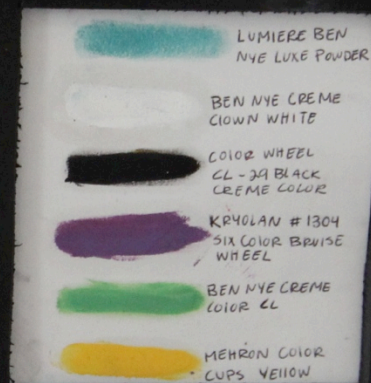 LUMIERE BEN
NYE LUXE POWDER
BEN NYE CREME
CLOWN WHITE
COLOR WHEEL
CL-29 BLACK
CREME COLOR
KRYOLAN #1304
SIX COLOR BRUISE
WHEEL
BEN NYE CREME
COLOR CL
MEHRON COLOR
CUPS YELLOW